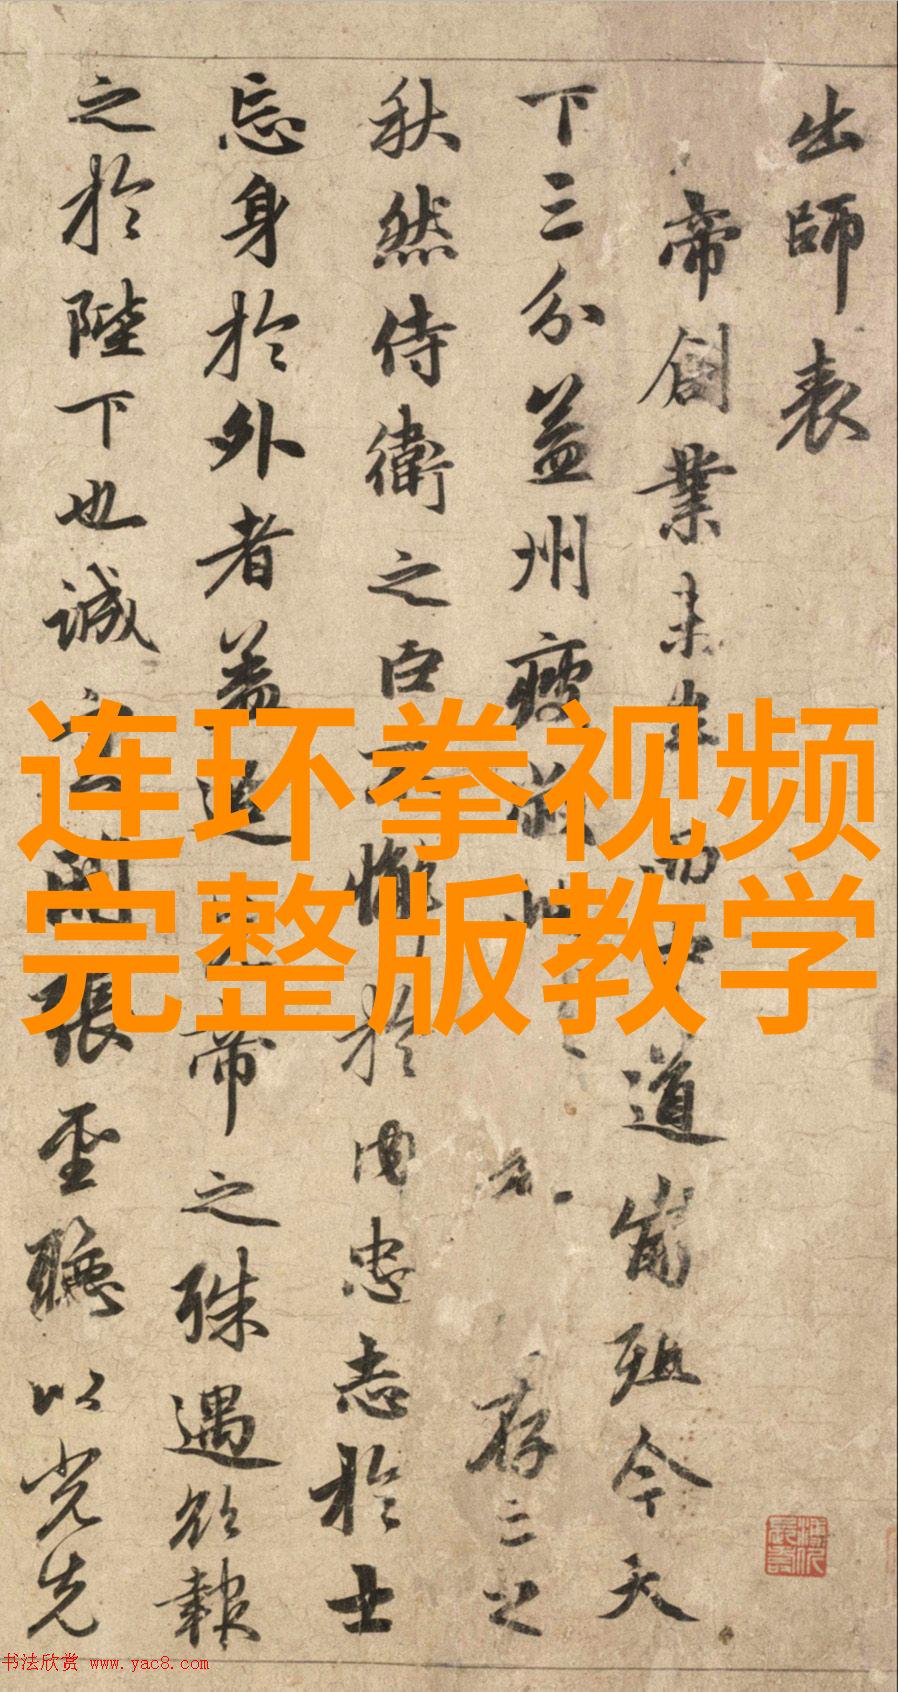 出師表
帝創業未半而道崩殂今天
下三分益州疲存亡之
秋然侍衛之臣不懈於内忠志於士
忘身於外者蓋追帝之殊遇欲報
之於陛下也誠宜開張聖聽以光先
连环拳视频
完整版教学
书法欣赏 www.yac8.com